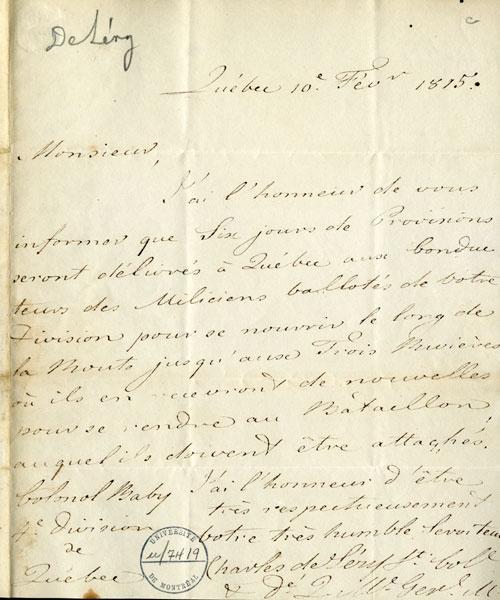 De Léry
Québec 10e. Févr 1815.
Monsieur,
J'ai l'honneur de vous
informer que Six jours de Provisions
seront délivrés à Québec aux conduc
teurs des Miliciens ballotés de votre
Division pour se nourrir le long de
la Route jusqu'aux Trois Rivières
où ils en recevront de nouvelles
pour se rendre au Bataillon,
auquel ils doivent être attachés.
J'ai l'honneur d'être
très respectueusement
Votre très humble Serviteur
Charles de Lery Lt. Coll
& Dé. Q. Mr. Genl. M
Colonel Baby
4e. Division
de
Québec
UNIVERSITÉ
u/7419
DE MONTRÉAL